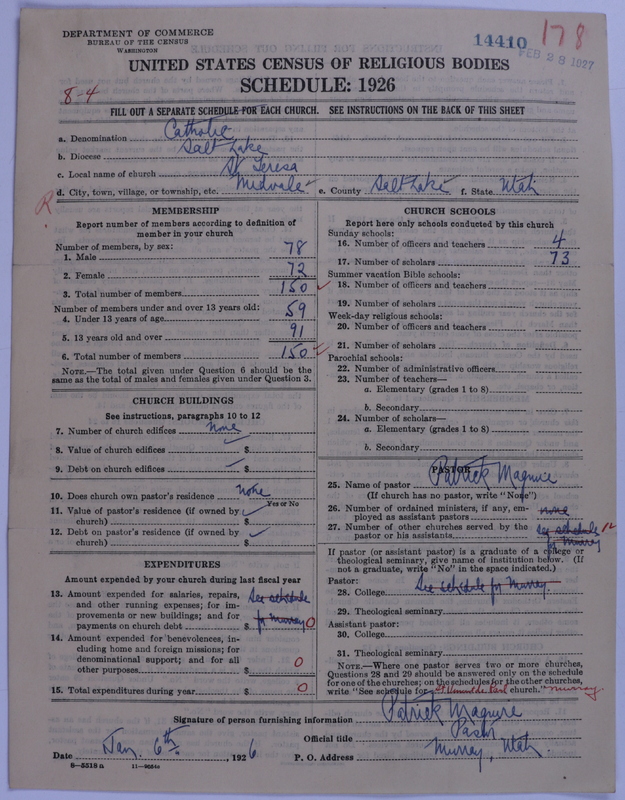 DEPARTMENT OF COMMERCE
BUREAU OF THE CENSUS
WASHINGTON
14410
178
FEB 28 1927
UNITED STATES CENSUS OF RELIGIOUS BODIES
SCHEDULE: 1926
8-4
FILL OUT A SEPARATE SCHEDULE FOR EACH CHURCH. SEE INSTRUCTIONS ON THE BACK OF THIS SHEET
a. Denomination Catholic
b. Diocese Salt Lake
c. Local name of church St Teresa
d. City, town, village, or township, etc. Midvale e. County Salt Lake f. State Utah
R.
MEMBERSHIP
Report number of members according to definition of
member in your church
Number of members, by sex:
1. Male 78
2. Female 72
3. Total number of members 150
Number of members under and over 13 years old:
4. Under 13 years of age 59
5. 13 years old and over 91
6. Total number of members 150
NOTE.—The total given under Question 6 should be
same as the total of males and females given under Question 3.
CHURCH BUILDINGS
See instructions, paragraphs 10 to 12
7. Number of church edifices none
8. Value of church edifices $
9. Debt on church edifices $
10. Does church own pastor's residence none
Yes or No
11. Value of pastor's residence (if owned by
church) $
12. Debt on pastor's residence (if owned by
church) $
EXPENDITURES
Amount expended by your church during last fiscal year
13. Amount expended for salaries, repairs,
and other running expenses; for im-
provements or new buildings; and for
payments on church debt $ See schedule for Murray 0
14. Amount expended for benevolences, in-
cluding home and foreign missions; for
denominational support; and for all
other purposes $ 0
15. Total expenditures during year $ 0
CHURCH SCHOOLS
Report here only schools conducted by this church
Sunday schools:
16. Number of officers and teachers 4
17. Number of scholars 73
Summer vacation Bible schools:
18. Number of officers and teachers
19. Number of scholars
Week-day religious schools:
20. Number of officers and teachers
21. Number of scholars
Parochial schools:
22. Number of administrative officers
23. Number of teachers—
a. Elementary (grades 1 to 8)
b. Secondary
24. Number of scholars—
a. Elementary (grades 1 to 8)
b. Secondary
PASTOR
25. Name of pastor Patrick Maguire
(If church has no pastor, write "None")
26. Number of ordained ministers, if any, em-
ployed as assistant pastors none
27. Number of other churches served by the
pastor or his assistants see schedule for Murray
If pastor (or assistant pastor) is a graduate of a college or
theological seminary, give name of institution below. (If
not a graduate, write "No" in the space indicated.)
Pastor:
28. College See schedule for Murray.
29. Theological seminary
Assistant pastor:
30. College
31. Theological seminary
NOTE.—Where one pastor serves two or more churches,
Questions 28 and 29 should be answered only on the schedule
for one of the churches; on the schedules for the other churches,
write "See schedule for St Vincent de Paul church." Murray.
Signature of person furnishing information Patrick Maguire
Official title Pastor
Date Jan. 6th, 1926 P. O. Address Murray, Utah
8-5518 a